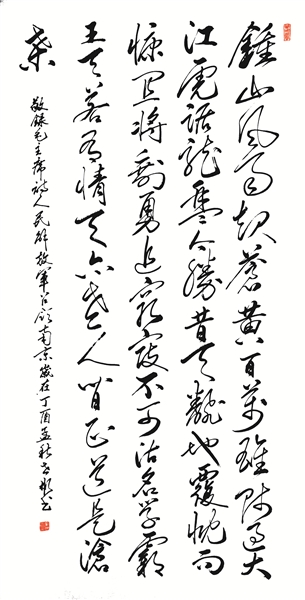 鍾山风雨起蒼黄百萬雄师过大
江虎踞龍盘今勝昔天翻地覆慨而
慷宜将剩勇追窮寇不可沽名学霸
王天若有情天亦老人间正道是滄
桑
敬录毛主席诗人民解放军占领南京歲在丁酉孟秋